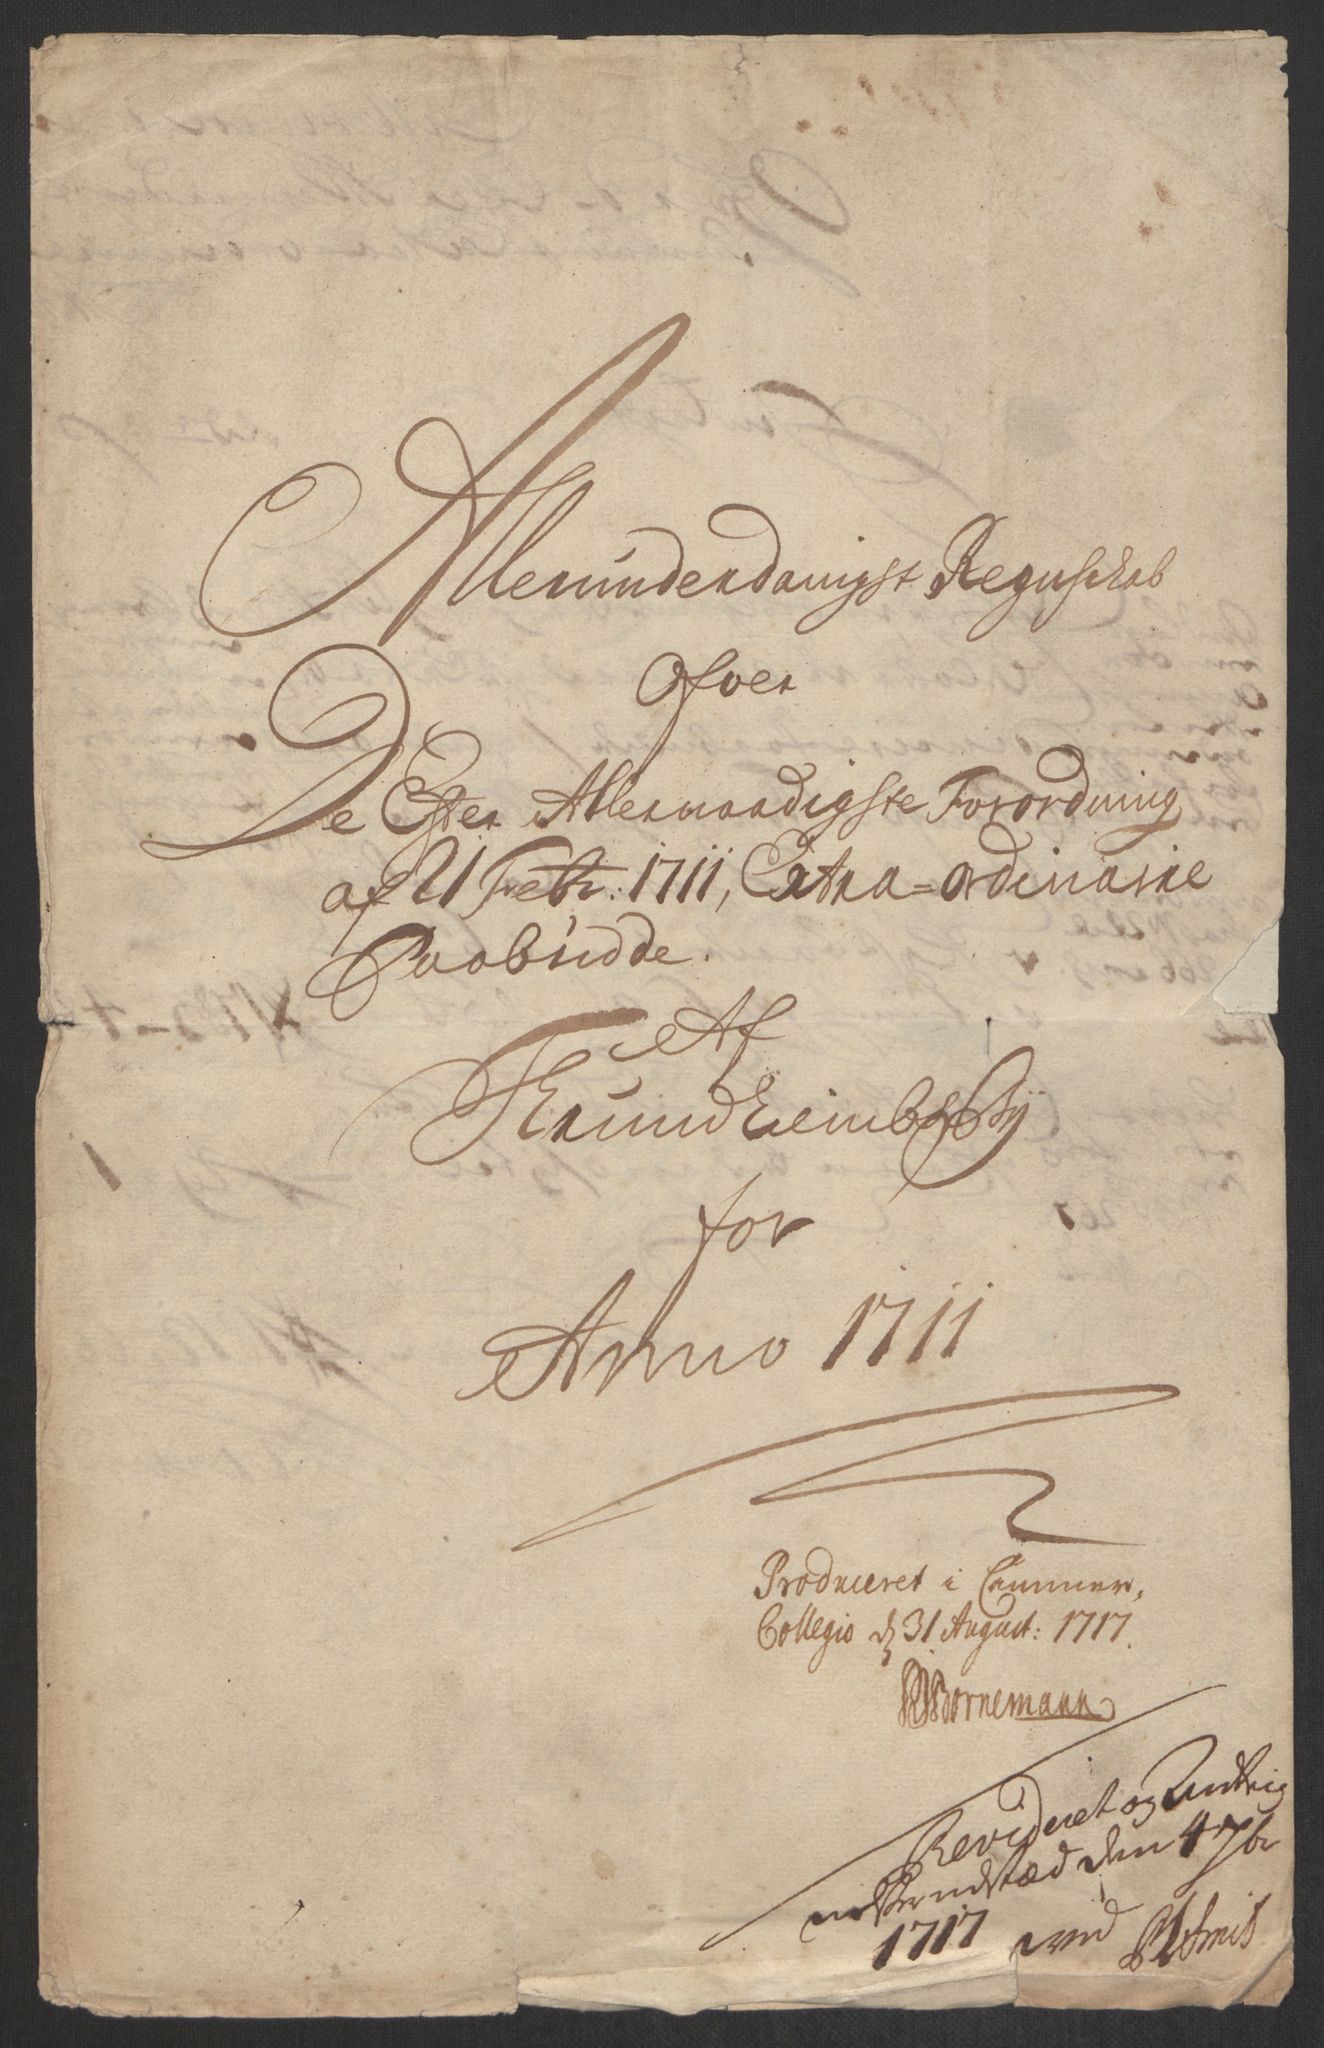 Allerunderdanigst Regnskab
Ofver
De Efter Allernaadigste Forordning
af 21 Febr: 1711, Extra=ordinarie
Paabudde.
Af
Trundheimbs Bÿ
for
Anno 1711
Produceret i Cammer,
Collegio d 31 August: 1717.
Bornemann
Revideret og Rigtig
den 4 7br
1717 ved